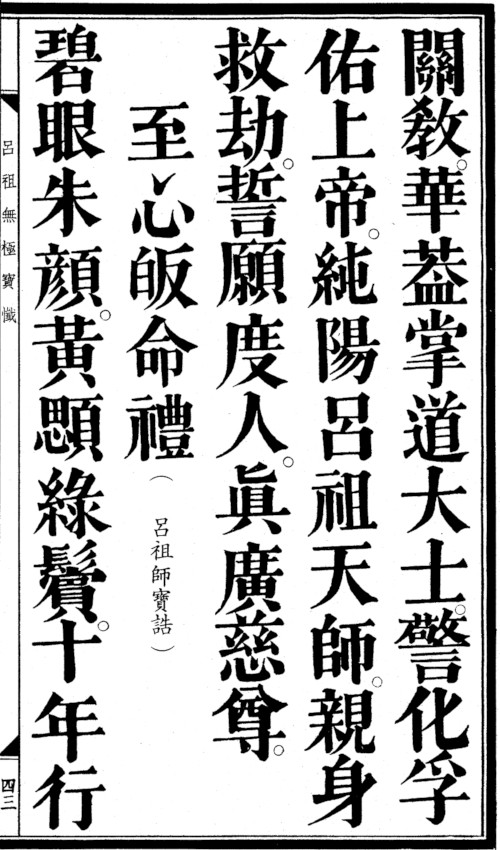 關敎。華葢掌道大士。警化孚
佑上帝。純陽呂祖天師。親身
救劫。誓願度人。眞廣慈尊。
至心皈命禮（呂祖師寶誥）
碧眼朱顔。黃顋綠鬢。十年行
呂祖無極寶懺
四三